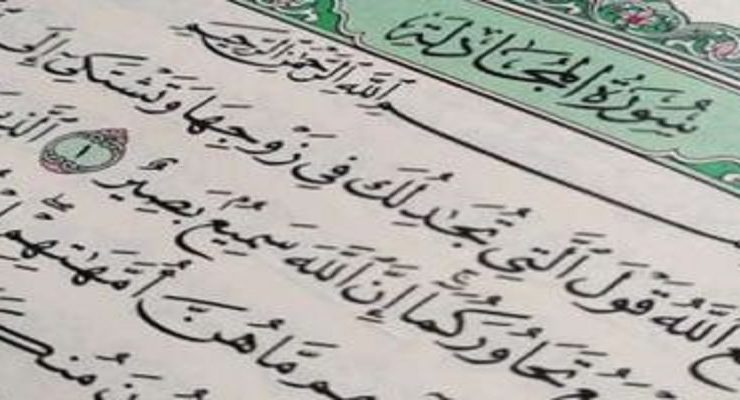 سُورَةُ المُجَادلة
ـمِ ٱللَّهِ ٱلرَّحْمَٰنِ ٱلرَّحِيمِ
ـعَ ٱللَّهُ قَوْلَ ٱلَّتِى تُجَٰدِلُكَ فِى زَوْجِهَا وَتَشْتَكِىٓ إِلَى
ـعُ تَحَاوُرَكُمَآ إِنَّ ٱللَّهَ سَمِيعُۢ بَصِيرٌ ١ ٱلَّذِيـ
ـهِم مَّا هُنَّ أُمَّهَٰتِهِمْ
ـونَ مُنكَـ